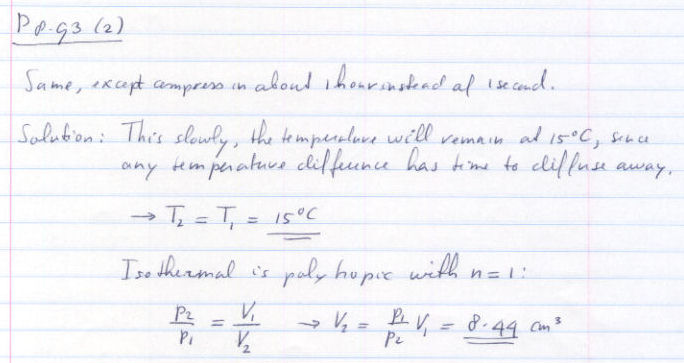 P8.93 (2)
Same, except compress in about 1 hour instead of 1 second.
Solution: This slowly, the temperature will remain at 15°C, since
any temperature difference has time to diffuse away.
→ T₂ = T₁ = 15°C
Isothermal is polytropic with n=1:
p₂/p₁ = V₁/V₂ → V₂ = p₁/p₂ V₁ = 8.44 cm³